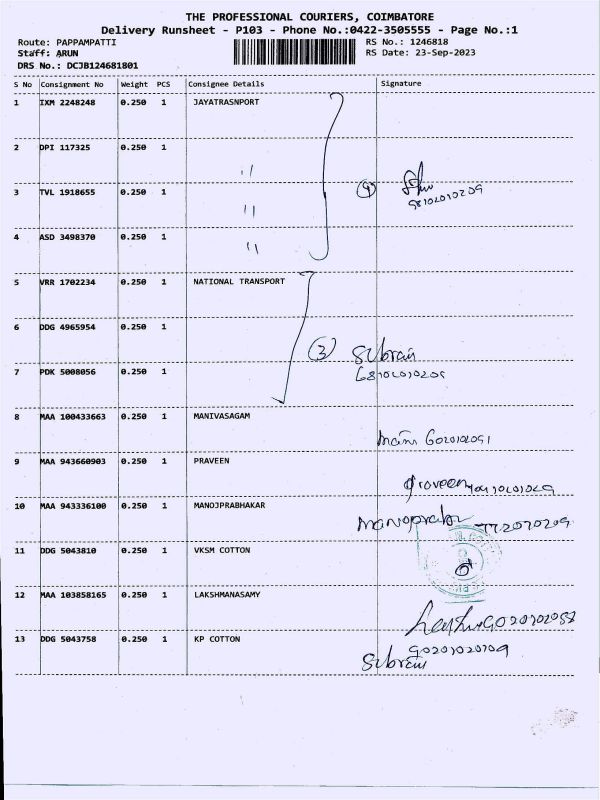 THE PROFESSIONAL COURIERS, COIMBATORE
Delivery Runsheet - P103 - Phone No.:0422-3505555 - Page No.:1
Route: PAPPAMPATTI RS No.: 1246818
Staff: ARUN RS Date: 23-Sep-2023
DRS No.: DCJB124681801
S No Consignment No Weight PCS Consignee Details Signature
1 IXM 2248248 0.250 1 JAYATRASNPORT
2 DPI 117325 0.250 1 "
3 TVL 1918655 0.250 1 " (4)
4 ASD 3498370 0.250 1 "
5 VRR 1702234 0.250 1 NATIONAL TRANSPORT
6 DDG 4965954 0.250 1 (3)
7 PDK 5008056 0.250 1
8 MAA 100433663 0.250 1 MANIVASAGAM
Mani
9 MAA 943660903 0.250 1 PRAVEEN
Praveen
10 MAA 943336100 0.250 1 MANOJPRABHAKAR
11 DDG 5043810 0.250 1 VKSM COTTON
12 MAA 103858165 0.250 1 LAKSHMANASAMY
13 DDG 5043758 0.250 1 KP COTTON